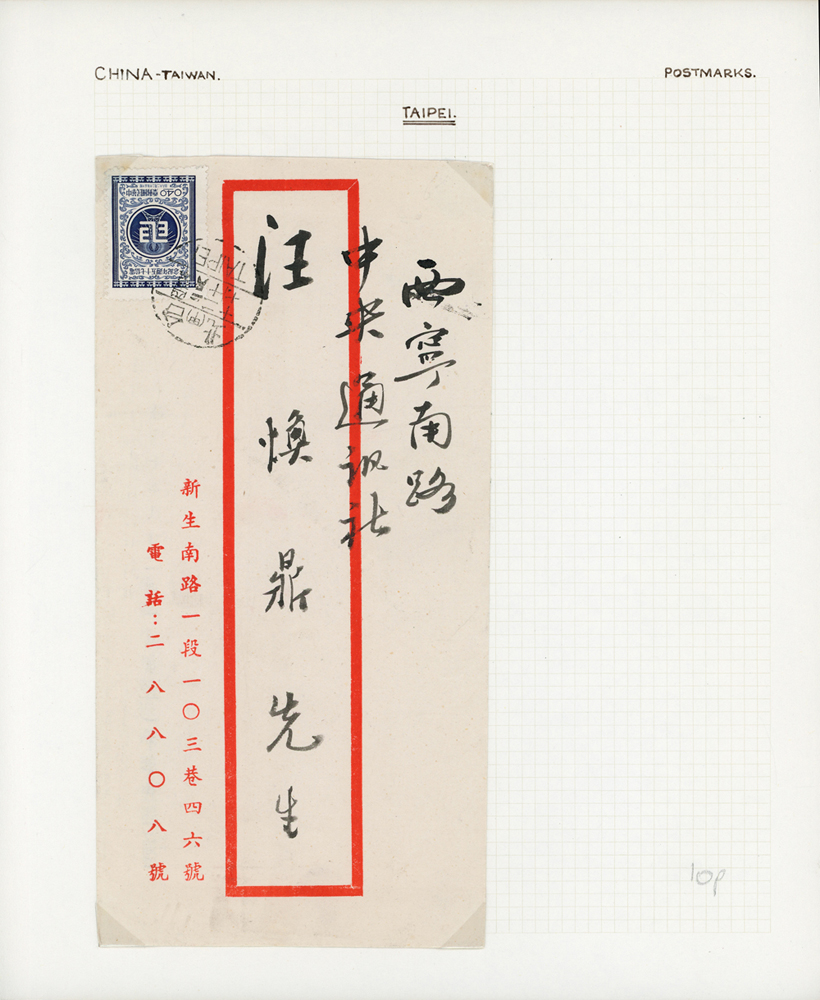 CHINA-TAIWAN.
POSTMARKS.
TAIPEI.
西寧南路
中央通訊社
汪煥鼎先生
新生南路一段一〇三巷四六號
電話：二八八〇八號
040
TAIPEI
10p